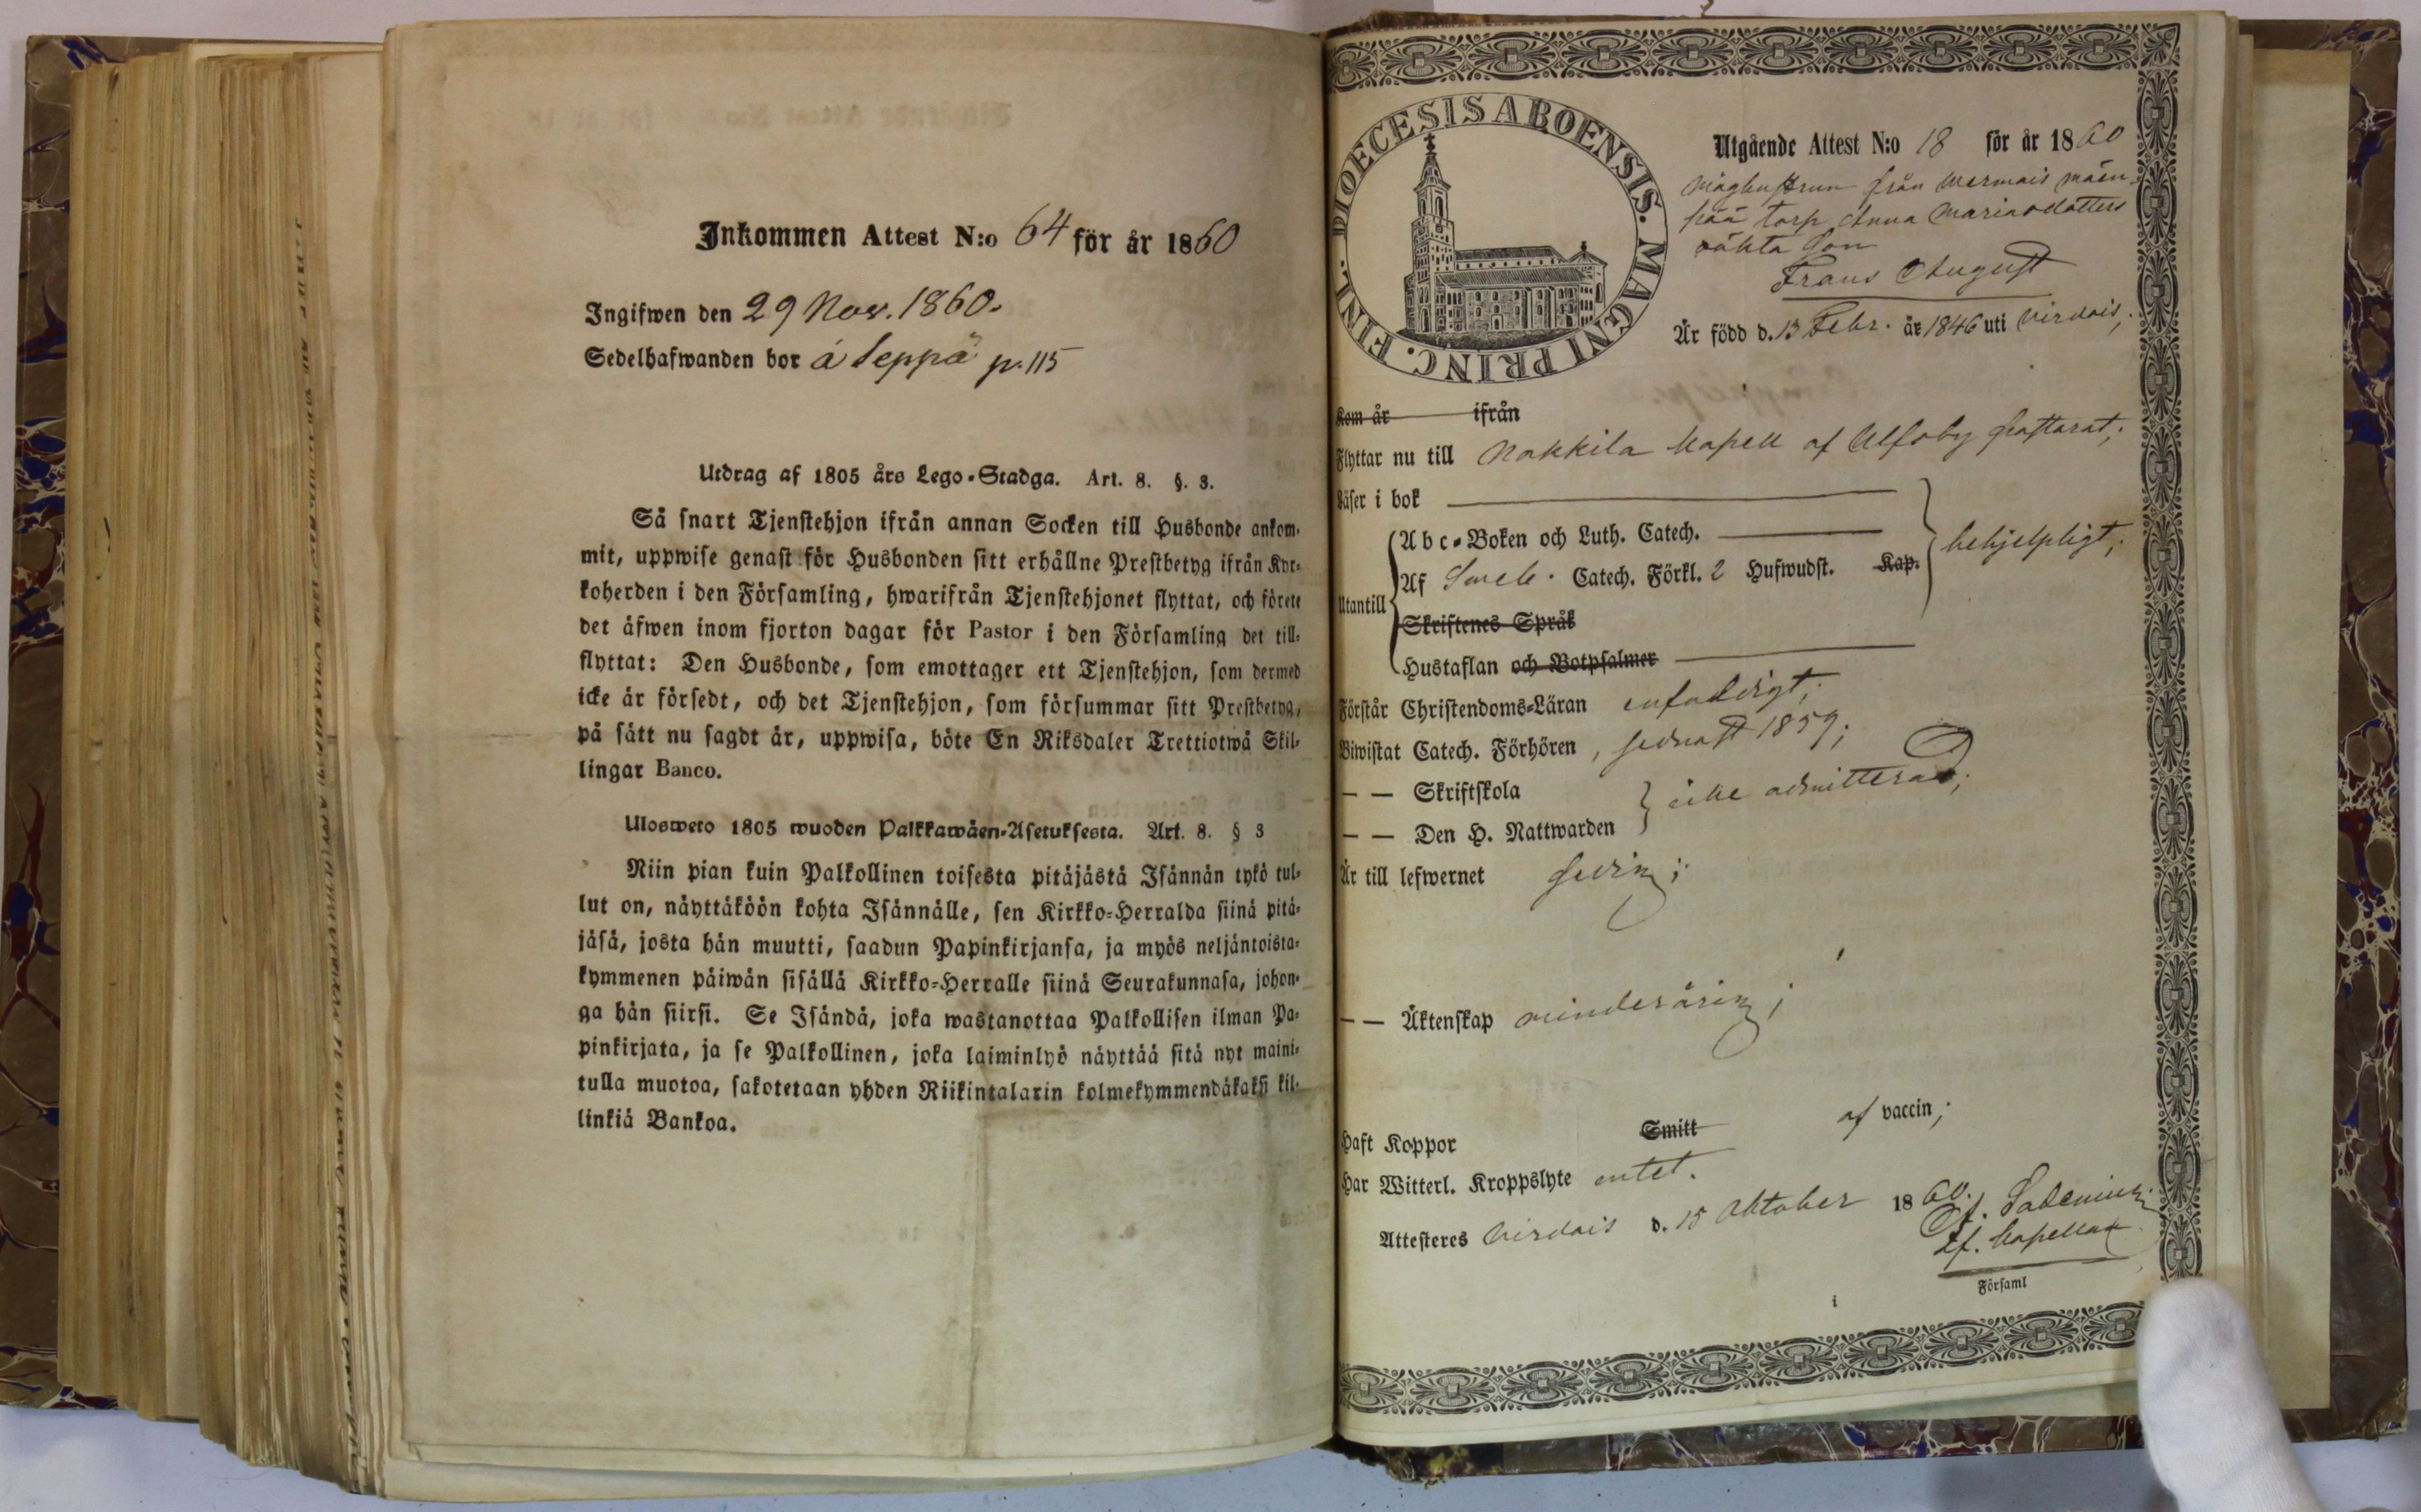 Inkommen Attest N:o 64 för år 1860
Ingifwen den 29 Nov. 1860.
Sedelhafwanden bor å Seppä p. 115
Utdrag af 1805 års Lego-Stadga. Art. 8. §. 3.
Så snart Tjenstehjon ifrån annan Socken till Husbonde ankom-
mit, uppwise genast för Husbonden sitt erhållne Prestbetyg ifrån Kyr-
koherden i den Församling, hwarifrån Tjenstehjonet flyttat, och förete
det äfwen inom fjorton dagar för Pastor i den Församling det till-
flyttat: Den Husbonde, som emottager ett Tjenstehjon, som dermed
icke är försedt, och det Tjenstehjon, som försummar sitt Prestbetyg,
på sätt nu sagdt är, uppwisa, böte En Riksdaler Trettiotwå Skil-
lingar Banco.
Ulosweto 1805 wuoden Palkkawäen-Asetuksesta. Art. 8. § 3
Niin pian kuin Palkollinen toisesta pitäjästä Isännän tykö tul-
lut on, näyttäköön kohta Isännälle, sen Kirkko-Herralda siinä pitä-
jäsä, josta hän muutti, saadun Papinkirjansa, ja myös neljäntoista-
kymmenen päiwän sisällä Kirkko-Herralle siinä Seurakunnasa, johon-
ga hän siirsi. Se Isändä, joka wastanottaa Palkollisen ilman Pa-
pinkirjata, ja se Palkollinen, joka laiminlyö näyttää sitä nyt maini-
tulla muotoa, sakotetaan yhden Riikintalarin kolmekymmendäkaksi kil-
linkiä Bankoa.
DIOECESIS ABOENSIS. MAGNI PRINC. FINL.
Utgående Attest N:o 18 för år 1860
från Wermais mäen-
pää torp Anna Mariasdotters
oäkta Son
Frans August
Är född d. 13 Febr. år 1846 uti Virdois,
Kom år ifrån
Flyttar nu till Nakkila Kapell af Ulfsby pastorat;
Läser i bok
Abc-Boken och Luth. Catech.
Utantill Af Sweb. Catech. Förkl. 2 Hufwudst. Kap. behjelpligt;
Skriftenes Språk
Hustaflan och Botpsalmer
Förstår Christendoms-Läran enfaldigt;
Biwistat Catech. Förhören, sednast 1859;
— — Skriftskola
— — Den H. Nattwarden icke admitterad;
Är till lefwernet sedig;
— — Äktenskap minderårig;
Haft Koppor Smitt af vaccin;
Har Witterl. Kroppslyte intet.
Attesteres Virdois d. 15 Oktober 1860.
Kapellan
Församl
i